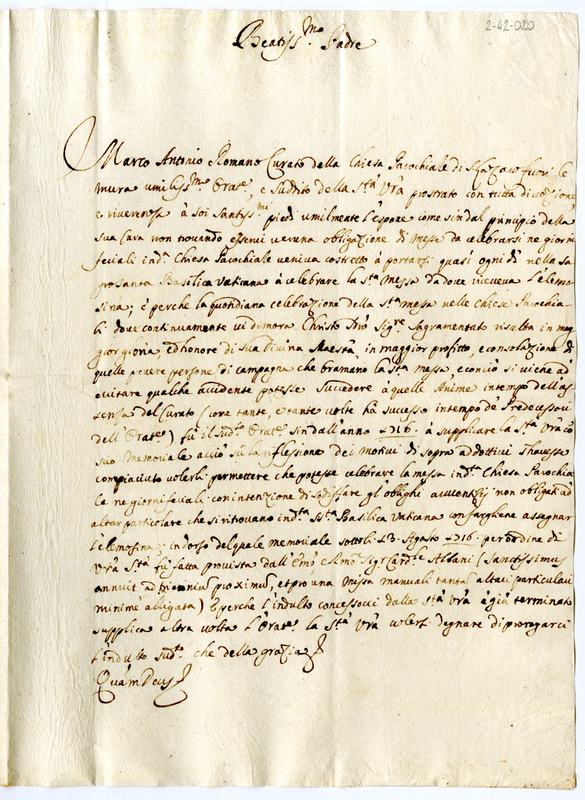 2-42-020
Beatiss.mo Padre
Marco Antonio Romano Curato della Chiesa Parochiale di S. Lazaro fuori le
mura umiliss.mo Orat.e, e suddito della S.tà V.ra prostrato con tutta divozione,
e riverenza à soi Santiss.mi piedi umilmente l'espone come sin dal principio della
sua Cura non trovando esservi veruna obligazione di Messe da celebrarsi ne giorni
feriali ind.a Chiesa Parochiale veniva costretto à portarsi quasi ogni dì nella Sa
grosanta Basilica Vaticana à celebrare la S.ta Messa da dove riceveva l'elemo
sina; e perche la quotidiana celebrazione della S.ta messa nelle Chiese Parochia
li dove continuamente vi dimora Christo N.ro Sig.re Sagramentato risulta in mag
gior gloria, ed honore di sua Divina Maestà, in maggior profitto, e consolazione di
quelle povere persone di campagna che bramano la S.ta messa, e con ciò si viene ad
evitare qualche accidente potesse succedere à quelle Anime in tempo dell'as
senza del Curato (come tante, e tante volte hà successo in tempo de Predecessori
dell'Orat.e) fù il sud.o Orat.e sin dall'anno 1716. à supplicare la S.tà V.ra co
suo Memoriale acciò sù la riflessione dei motivi di sopra addottivi s'havesse
compiaciuto volerli permettere che potesse celebrare la messa ind.a Chiesa Parochia
le ne giorni feriali con intenzione di sodisfare gl'oblighi non obligati ad
altar particolare che si ritrovano ind.ta SS.ta Basilica Vaticana con fargliene assegnar
l'elemosina; in dorso del quale memoriale sotto li 13. Agosto 1716. per ordine di
V.ra S.tà fù fatta provista dall'Em̃o Rm̃o Sig.r Card.le Albani (Sanctissimus
annuit ad triennium proximum, et pro una Missa manuali tantum altari particulari
minime alligata) E perche l'indulto concessovi dalla S.tà V.ra è già terminato
supplica altra volta l'Orat.e la S.tà V.ra volersi degnare di prorogarci
l'indulto sud.o che della grazia
Quam Deus